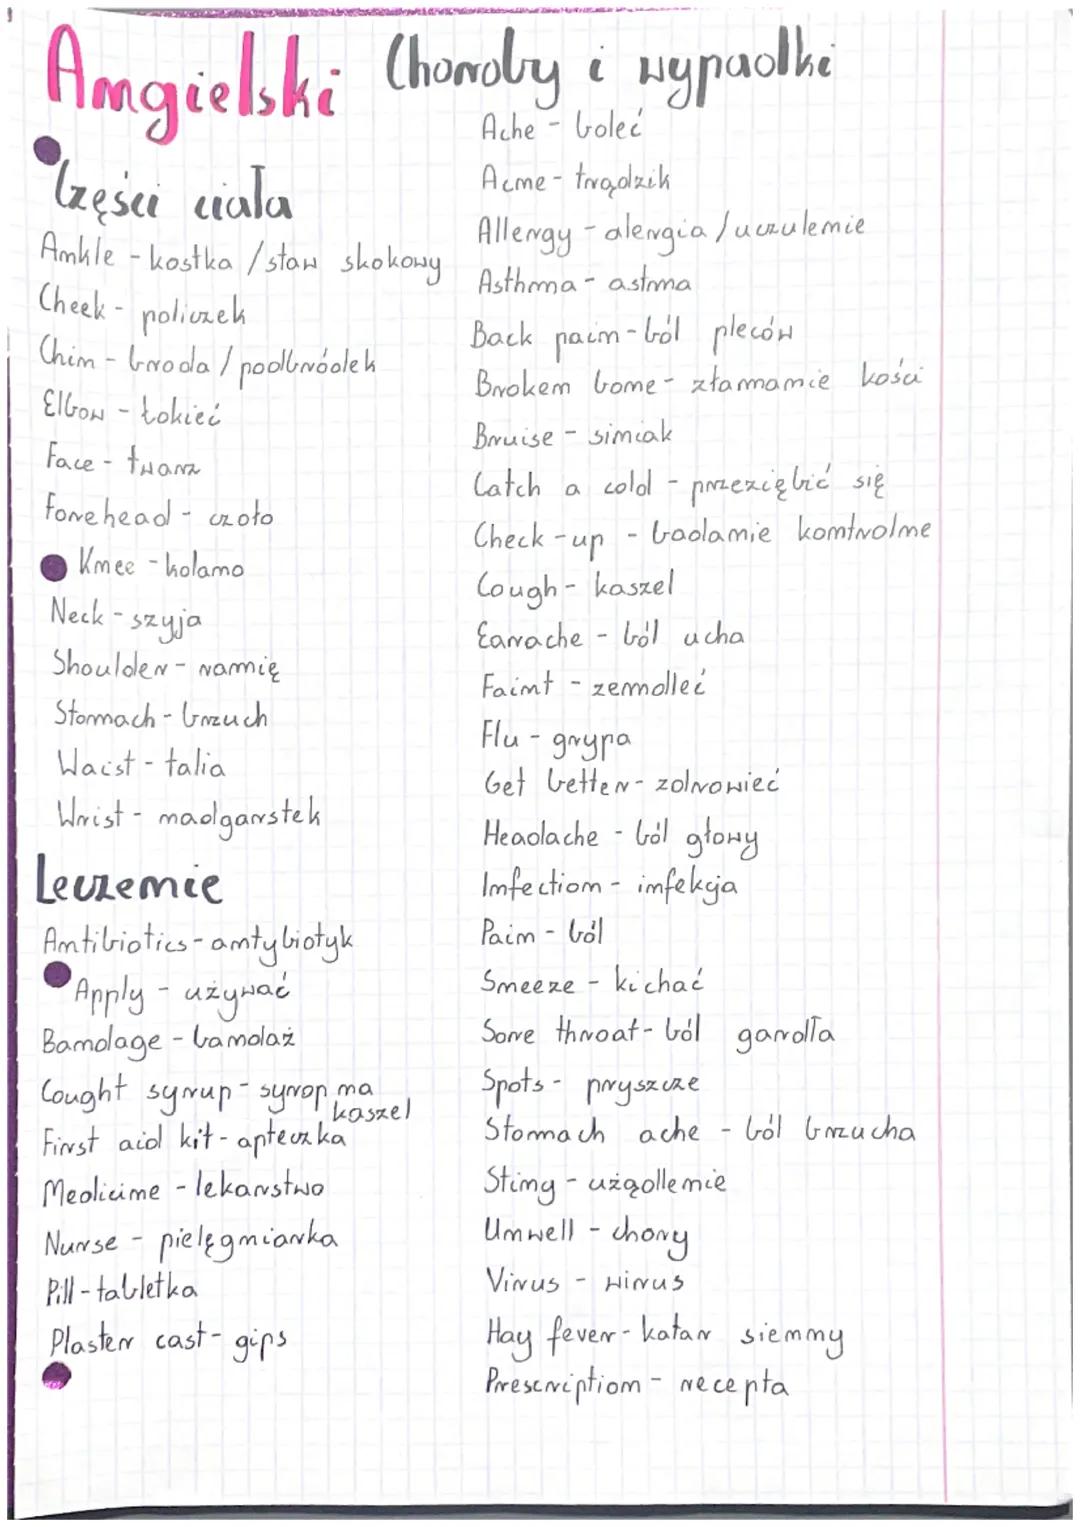 Angielski
Części ciała
Ankle - kostka / staw skokowy
Cheek - policzek
Chin - broda / podbródek
Elbow - łokieć
Face - twarz
Forehead - czoło
Knee - kolano
Neck - szyja
Shoulder - ramię
Stomach - brzuch
Waist - talia
Wrist - nadgarstek
Leczenie
Antibiotics - antybiotyk
Apply - używać
Bandage - bandaż
Cought syrup - syrop na
kaszel
First aid kit - apteczka
Medicine - lekarstwo
Nurse - pielęgniarka
Pill - tabletka
Plaster cast - gips
Choroby i wypadki
Ache - boleć
Acne - trądzik
Allergy - alergia / uczulenie
Asthma - astma
Back pain - ból pleców
Broken bone - złamanie kości
Bruise - siniak
Catch a cold - przeziębić się
Check-up - badanie kontrolne
Cough - kaszel
Earache - ból ucha
Faint - zemdleć
Flu - grypa
Get better - zdrowieć
Headache - ból głowy
Infection - infekcja
Pain - ból
Sneeze - kichać
Sore throat - ból gardła
Spots - pryszcze
Stomach ache - ból brzucha
Sting - użądlenie
Unwell - chory
Virus - wirus
Hay fever - katar sienny
Prescription - recepta